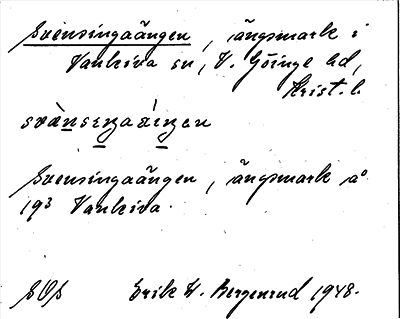 Svensingaängen, ängsmark i
Vankiva sn, V. Göinge hd,
Krist. l.
svànseŋaäŋen
Svensingaängen, ängsmark å
19³ Vankiva.
SOS Erik H. Bergenrud 1948.